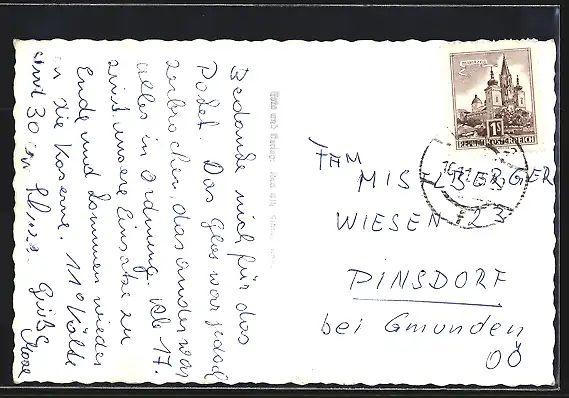 Bedanke mich für das
Paket. Das Glas war jedoch
zerbrochen, das andere war
alles in Ordnung. Ab 17.
sind unsere Einsätze zu
Ende und kommen wieder
in die Kaserne. 11° Kälte
und 30 cm
Grüße
FAM
MISTLBERGER
WIESEN 23
PINSDORF
bei Gmunden
OÖ
1S
REPUBLIK ÖSTERREICH